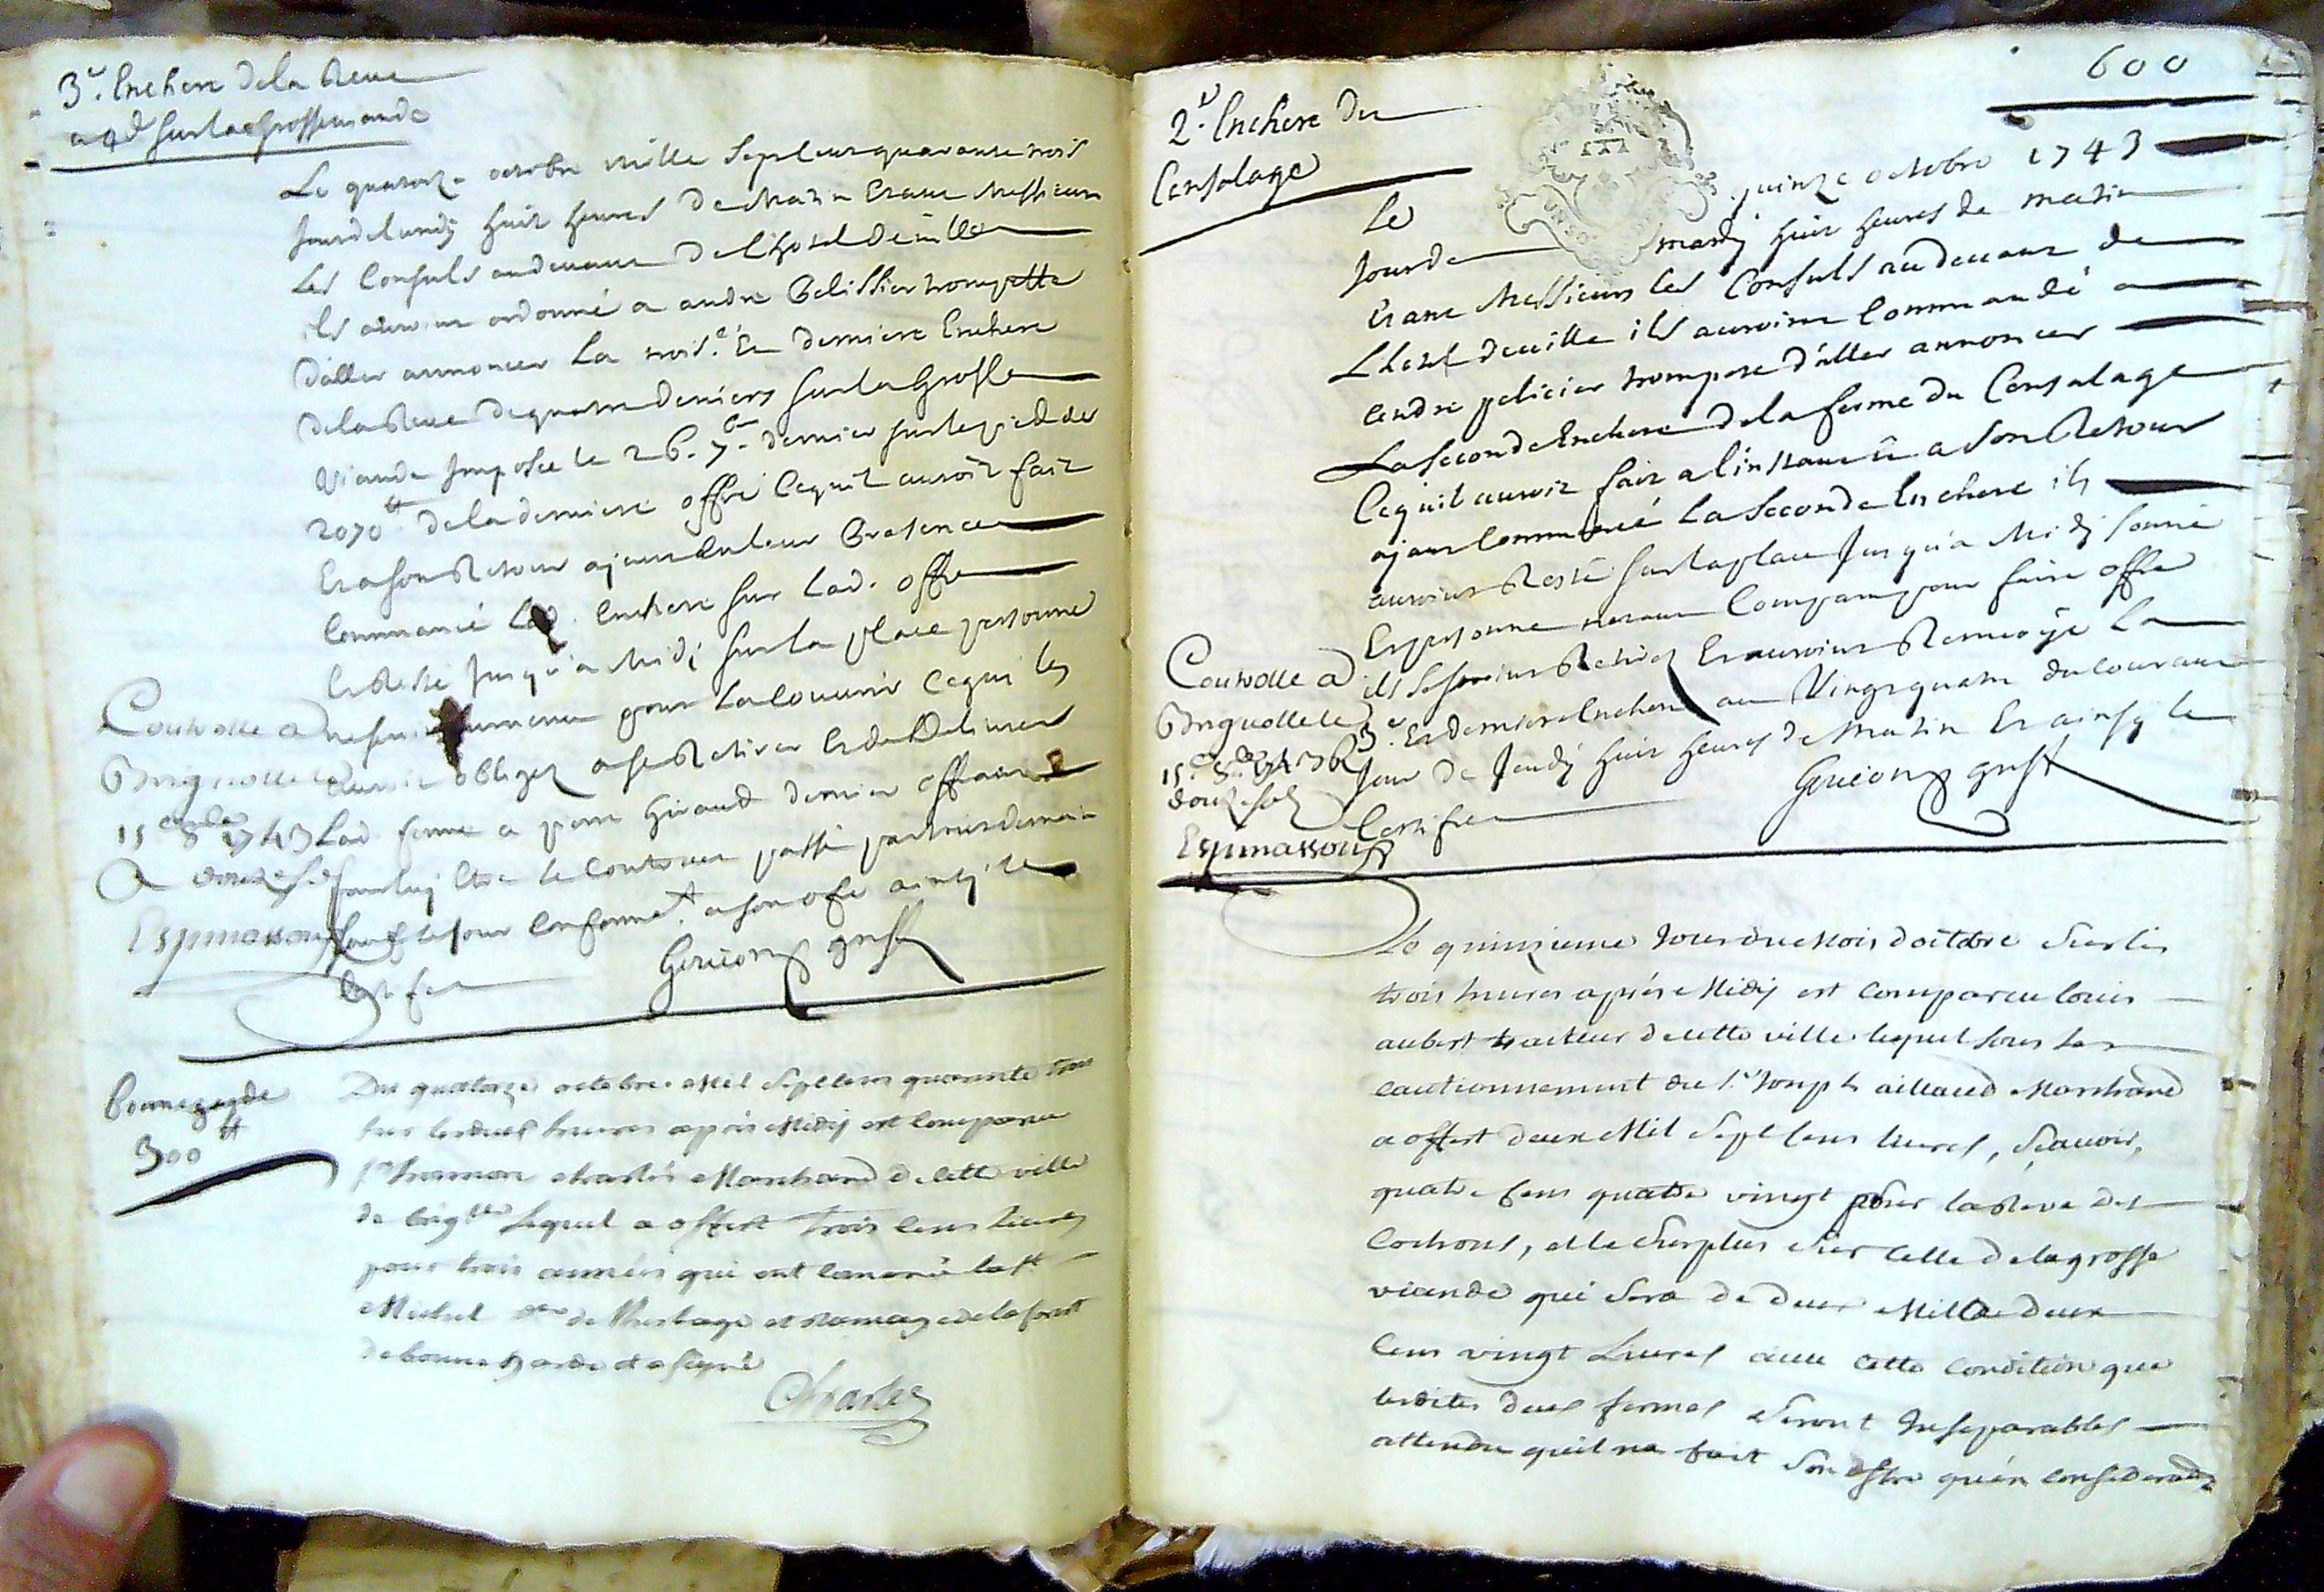 3.e Enchere dela Reve
a 4d sur la Grosse viande
Le quatorze octobre mille sept cens quarante trois
jour de lundy huit heures de Matin Etant Messieurs
Les Consuls audevant de l'hotel de ville
ils auroint ordonné a andre Pelissier trompette
d'aller annoncer La trois.e Et derniere Enchere
dela Reve de quatre deniers sur la Grosse
Viande Imposée le 26. 7bre dernier sur le pied de
2070 tt de la derniere offre Ce qu'il auroit fait
Et a son Retour ayant En leur Presence
Commancé lad. Enchere sur lad. offre
Et Resté jusqu'a Midi sur la place personne
ne pour La Couvrir Ce qui les
auroit obligez a se Retirer Et de Delivrer
Lad. ferme a pierre Giraud dernier offrant
le Contract passé
conforme.t a son ofre ainsy le
Certifie
Gerieon greff
Controlle a
Brignolle le
15e 8bre 1743
douze sols
Espinassous
bonnegarde
300 tt
Du quatorze octobre Mil Sept cens quarante trois
sur les deux heures aprés Midy est comparu
sr charles Marchand de cette ville
lequel a offert trois cens livres
pour trois années qui ont commancé la st
Michel de l'herbage et ramage de la forest
de bonne garde et a signé
Charles
600
2.e Enchere du
Censolage
Le quinze octobre 1743
Jour de mardy huit heures de matin
Etant Messieurs les Consuls audevant de
L'hotel de ville ils auroint Commandé a
andre pelicier trompete d'aller annoncer
La Seconde Enchere de la ferme du Censalage
Ce qu'il auroit fait a l'instant Et a Son Retour
ayant Commancé La Seconde Enchere ils
auroint Resté sur la place Jusqu'a Midy Sonné
Et personne nayant Comparu pour faire offre
ils Seseroint Retirez Et auroint Renvoyé La
3.e Et derniere Enchere au Vingt quatre du Courant
Jour de Jeudy huit heures de Matin Et ainsy le
Certifie
Gerieon greff
Controlle a
Brignolle le
15e 8bre 1743
douze sols
Espinassous
Le quinzieme Jour du Mois d'octobre Sur les
trois heures aprés Midy est comparu louis
aubert traiteur de cette ville lequel sous le
cautionnement du sr Joseph aillaud Marchand
a offert deux Mil Sept cens livres, Sçavoir,
quatre cens quatre vingt pour la Reve des
Cochons, et le Surplus Sur celle de la grosse
viande qui Sera de deux Mille deux
cens vingt Livres avec cette condition que
lesdites deux fermes Seront Inseparables
attendu qu'il ne fait Son offre qu'en consideration